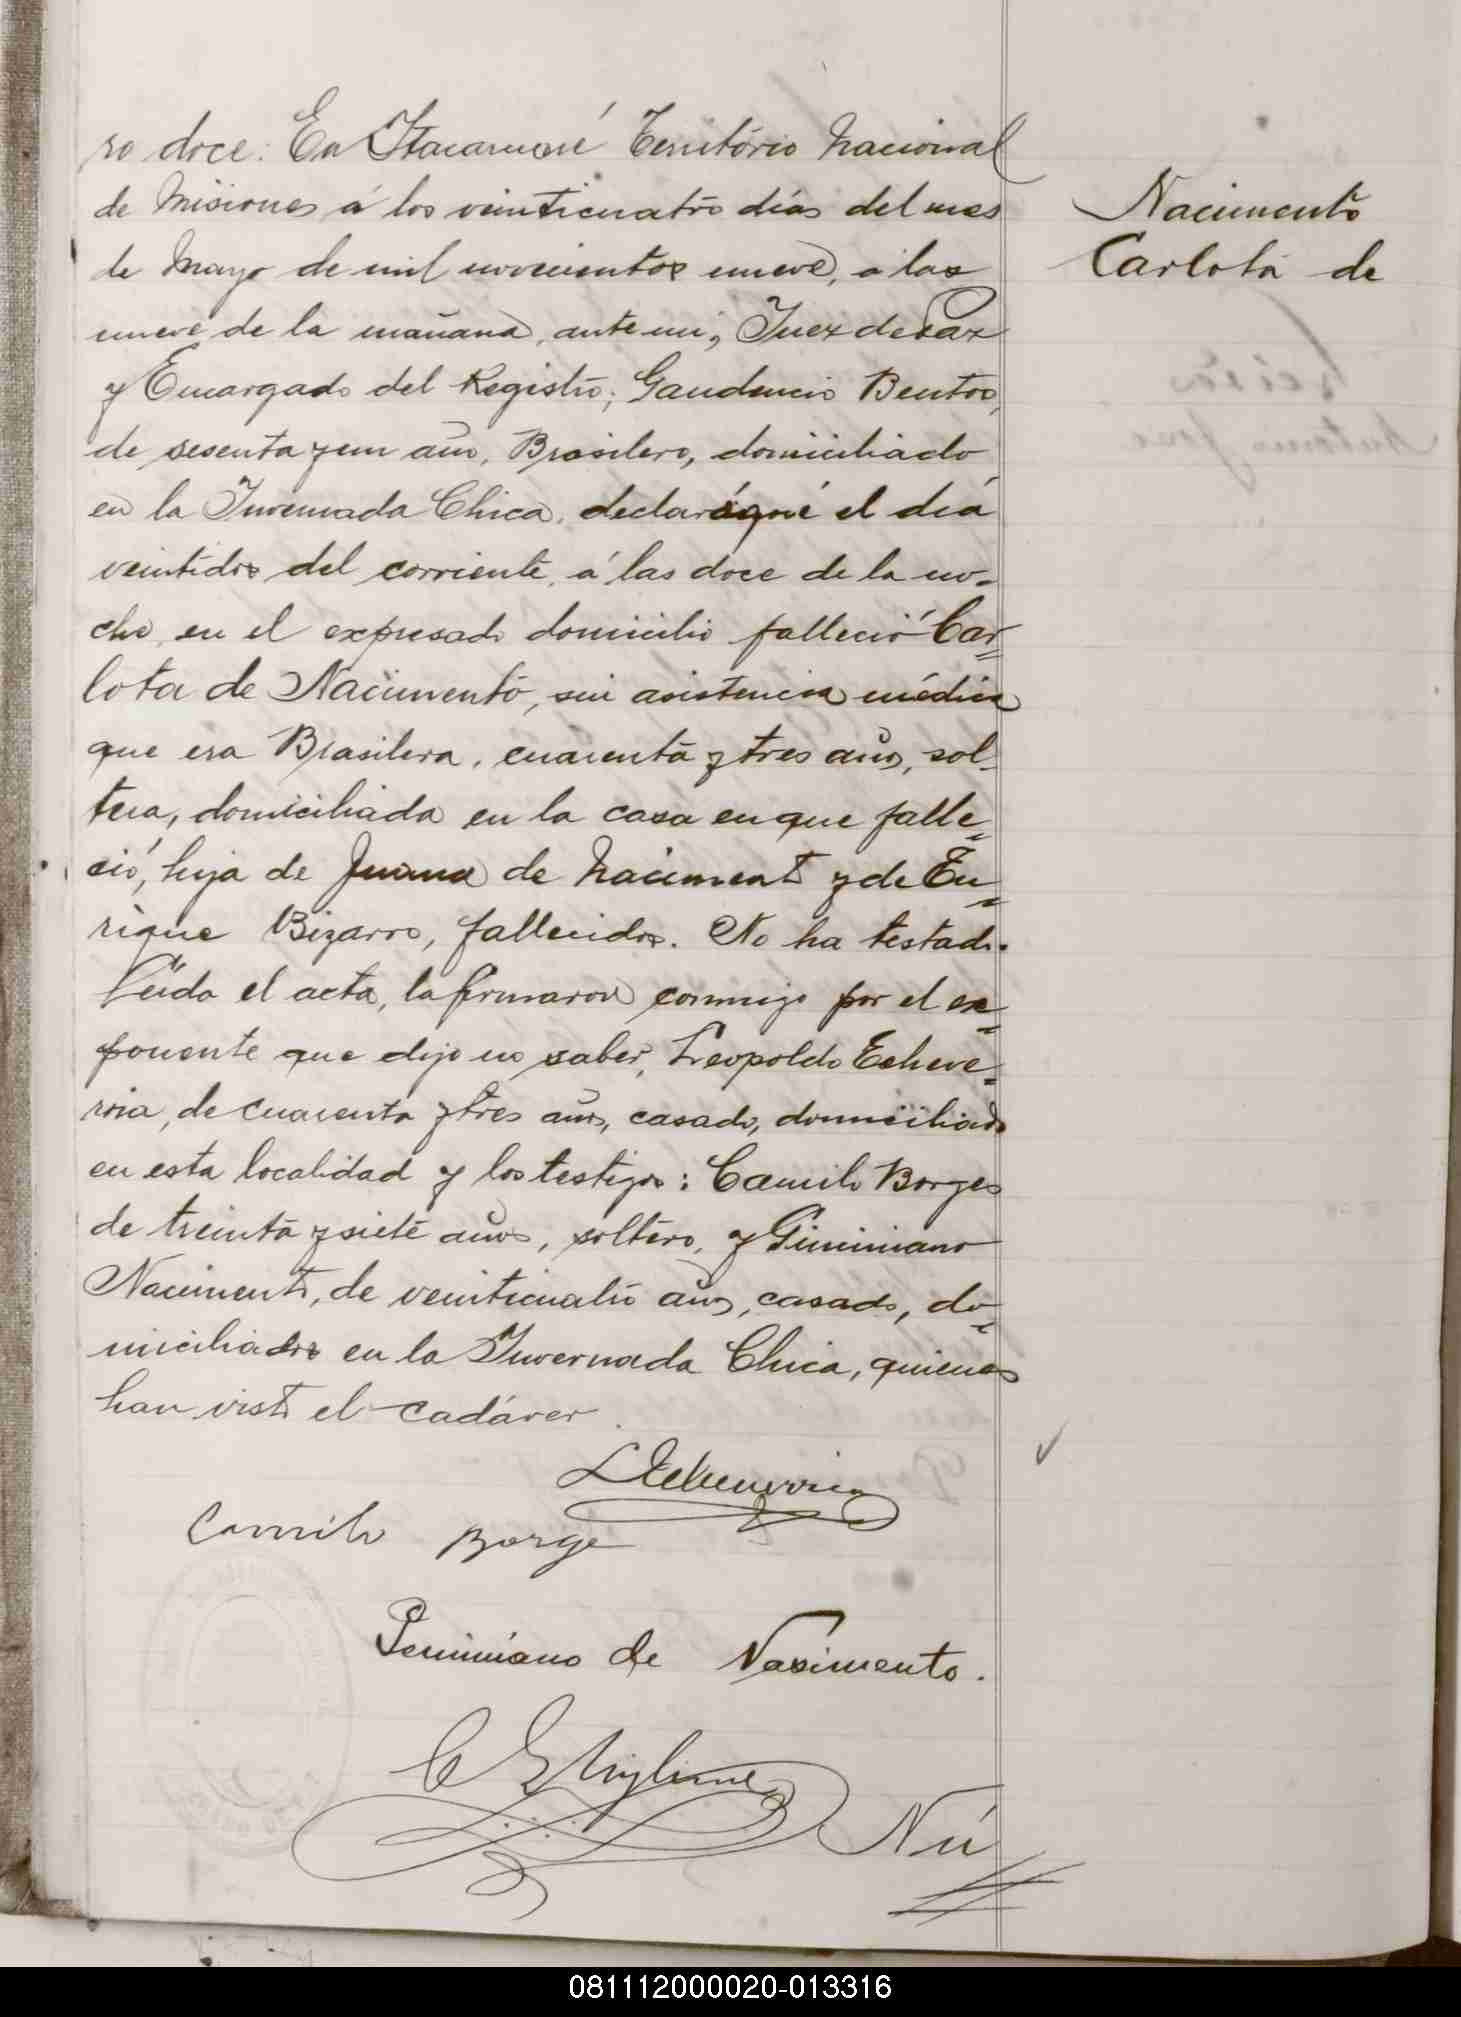 ro doce: En Itacaruaré Território Nacional
de Misiones á los veinticuatro días del mes
de Mayo de mil novecientos nueve, a las
nueve de la mañana, ante mi, Juez de Paz
y Encargado del Registro; Gaudencio Bentos,
de sesenta y un año, Brasilero, domiciliado
en la Invernada Chica, declaró qué el día
veintidos del corriente, á las doce de la no-
che, en el expresado domicilio falleció Car=
lota de Nacimento, sin asistencia médica
que era Brasilera, cuarenta y tres años, sol-
tera, domiciliada en la casa en que falle=
ció, hija de Juana de Naciment y de En=
rique Bizarro, fallecidos. No ha testado.
Leída el acta, la firmaron conmigo por el ex=
ponente que dijo no saber, Leopoldo Echeve=
rria, de cuarenta y tres años, casado, domiciliado
en esta localidad y los testigos: Camilo Borges
de treinta y siete años, soltero, y Giminiano
Naciment, de veinticuatro años, casado, do=
miciliados en la Invernada Chica, quienes
han visto el cadáver.
L Echeverria
Camilo Borge
Geminiano de Nasimento.
Nú
Nacimento
Carlota de
081112000020-013316